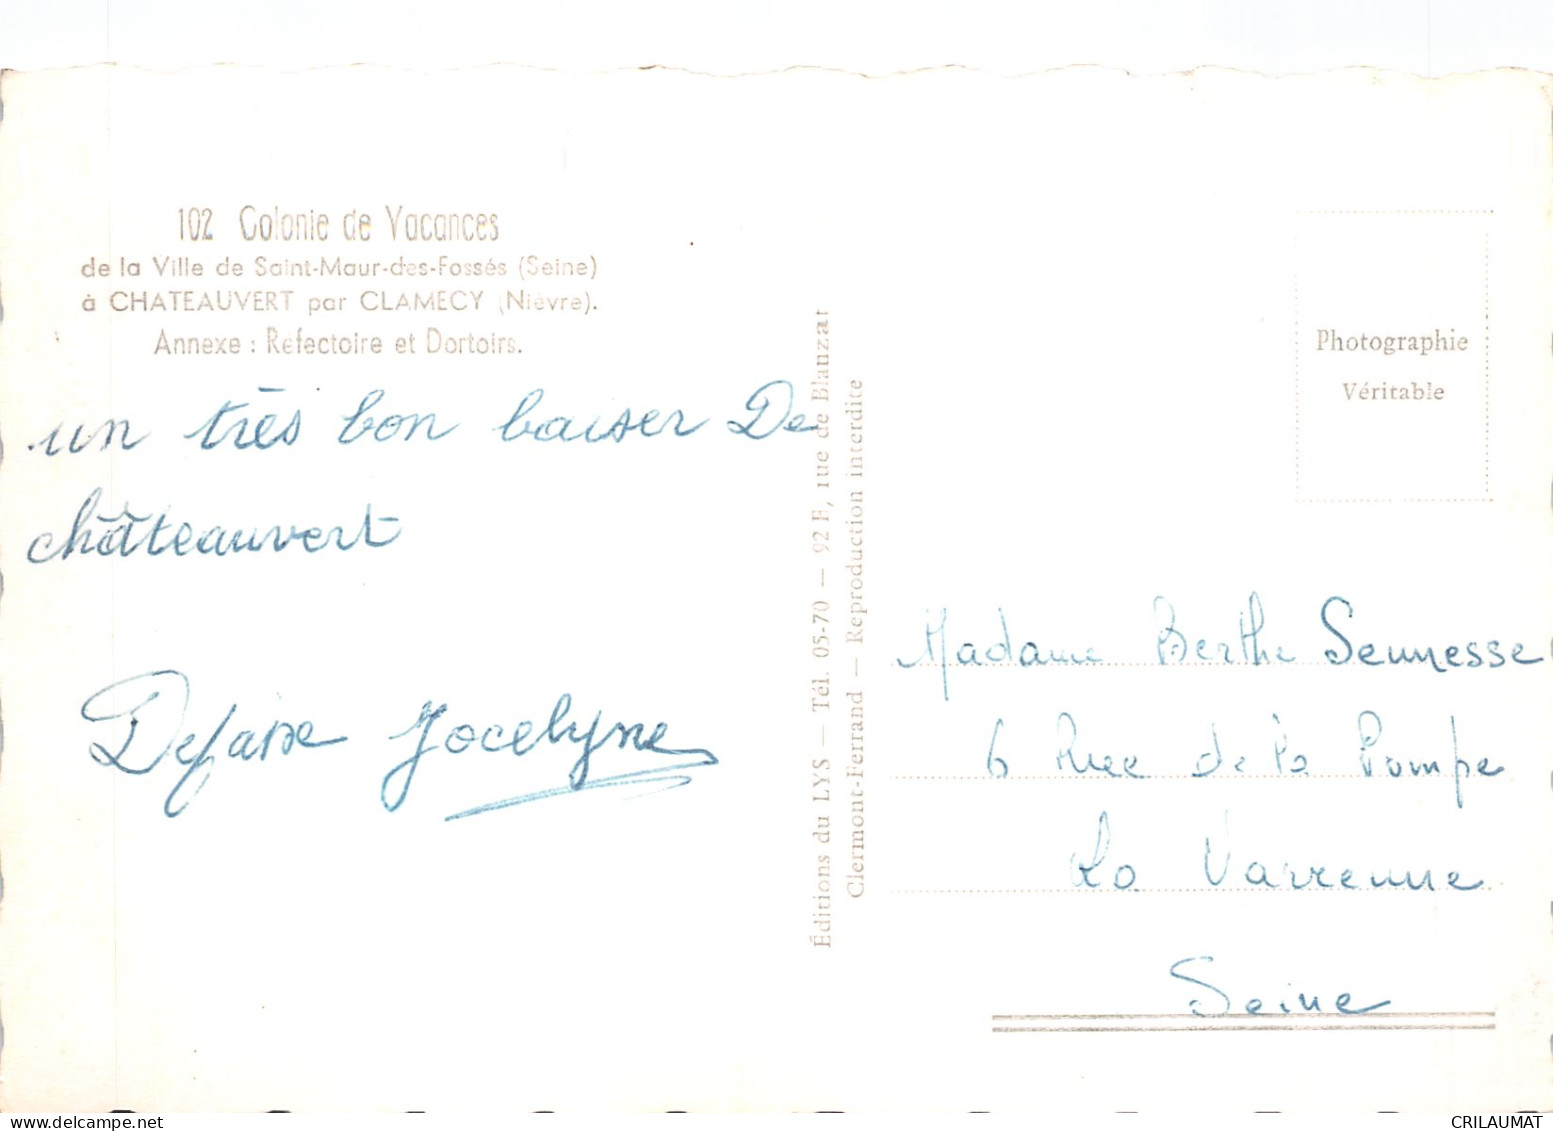 102 Colonie de Vacances
de la Ville de Saint-Maur-des-Fossés (Seine)
à CHATEAUVERT par CLAMECY (Nièvre).
Annexe : Refectoire et Dortoirs.
un très bon baiser De
châteauvert
Jocelyne
Éditions du LYS — Tél. 05-70 — 92 E, rue de Blanzat
Clermont-Ferrand — Reproduction interdite
Photographie
Véritable
Madame Berthe
6 Rue de la Pompe
La Varenne
Seine
CRILAUMAT